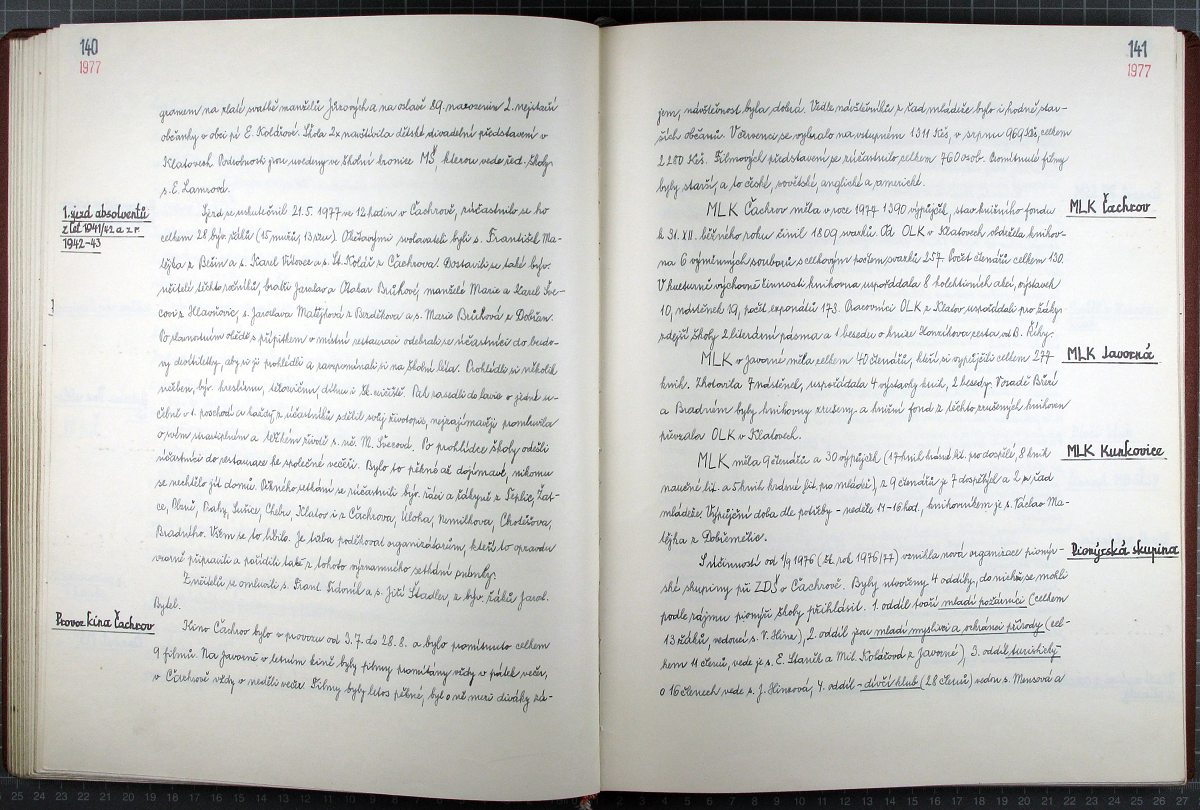 140
1977
gramem na zlaté svatbě manželů Jůzových a na oslavě 89. narozenin 2. nejstarší
občanky v obci pí E. Kolářové. Škola 2x navštívila dětské divadelní představení v
Klatovech. Podrobnosti jsou uvedeny ve školní kronice MŠ, kterou vede řed. školy
s. E. Lamrová.
1. sjezd absolventů
z let 1941/42 a z r.
1942-43
Sjezd se uskutečnil 21.5. 1977 ve 12 hodin v Čachrově, zúčastnilo se ho
celkem 28 býv. žáků (15 mužů, 13 žen). Obětavými svolavateli byli s. František Ma-
tějka z Běšin a s. Karel Vítovec a s. St. Kolář z Čachrova. Dostavili se také býv.
učitelé těchto ročníků, bratři Jaroslav a Otakar Brůhové, manželé Marie a Karel Šve-
covi z Hlavňovic, s. Jaroslava Matějková z Bezděkova a s. Marie Brůhová z Dobřan.
Po slavnostním obědě s přípitkem v místní restauraci odebrali se účastníci do budo-
vy devítiletky, aby si ji prohlédli a zavzpomínali si na školní léta. Prohlédli si několik
učeben, býv. kreslírnu, tělocvičnu, dílnu i šk. cvičiště. Pak zasedli do lavic v jedné u-
čebně v 1. poschodí a každý z účastníků sdělil svůj životopis, nejzajímavěji promluvila
o svém strastiplném a těžkém životě s. uč. M. Švecová. Po prohlídce školy odešli
účastníci do restaurace ke společné večeři. Bylo to pěkné až dojímavé, nikomu
se nechtělo jít domů. Vzácného setkání se zúčastnili býv. žáci a žákyně z Teplic, Žat-
ce, Plzně, Prahy, Sušice, Chebu, Klatov i z Čachrova, Úloha, Nemilkova, Chotěšova,
Bradného. Všem se to líbilo. Je třeba poděkovat organizátorům, kteří to opravdu
vzorně připravili a pořídili také z tohoto významného setkání snímky.
Z učitelů se omluvili s. Frant. Zidoník a s. Jiří Štadler, z býv. žáků Jarol.
Bytel.
Provoz kina Čachrov
Kino Čachrov bylo v provozu od 3.7. do 28.8. a bylo promítnuto celkem
9 filmů. Na Javorné v letním kině byly filmy promítány vždy v pátek večer,
v Čachrově vždy v neděli večer. Filmy byly letos pěkné, byl o ně mezi diváky zá-
141
1977
jem, návštěvnost byla dobrá. Vedle návštěvníků z řad mládeže bylo i hodně star-
ších občanů. V červenci se vybralo na vstupném 1311 Kčs, v srpnu 969 Kčs, celkem
2280 Kčs. Filmových představení se zúčastnilo celkem 760 osob. Promítnuté filmy
byly starší, a to české, sovětské anglické a americké.
MLK Čachrov
MLK Čachrov měla v roce 1977 1390 výpůjček, stav knižního fondu
k 31. XII. běžného roku činil 1809 svazků. Od OLK v Klatovech obdržela knihov-
na 6 výměnných souborů s celkovým počtem svazků 257. Počet čtenářů celkem 130.
V kulturně výchovné činnosti knihovna uspořádala 8 kolektivních akcí, výstavek
10, nástěnek 19, počet exponátů 173. Pracovnice OLK z Klatov uspořádali pro žáky
zdejší školy 2 literární pásma a 1 besedu o knize Honzíkova cesta od B. Říhy.
MLK Javorná
MLK v Javorné měla celkem 40 čtenářů, kteří si vypůjčili celkem 277
knih. Zhotovila 7 nástěnek, uspořádala 4 výstavky knih, 2 besedy. V osadě Březí
a Bradném byly knihovny zrušeny a knižní fond z těchto zrušených knihoven
převzala OLK v Klatovech.
MLK Kunkovice
MLK měla 9 čtenářů a 30 výpůjček (17 knih krásné lit. pro dospělé, 8 knih
naučné lit. a 5 knih krásné lit. pro mládež), z 9 čtenářů je 7 dospělých a 2 z řad
mládeže. Výpůjční doba dle potřeby - neděle 14-16 hod., knihovníkem je s. Václav Ma-
tějka z Dobřemělic.
Pionýrská skupina
S účinností od 1/9 1976 (šk. rok 1976/77) vznikla nová organizace pionýr-
ské skupiny při ZDŠ v Čachrově. Byly utvořeny 4 oddíly, do nichž se mohli
podle zájmu pionýři školy přihlásit. 1. oddíl tvoří mladí požárníci (celkem
13 žáků, vedoucí s. V. Hinz), 2. oddíl jsou mladí myslivci a ochránci přírody (cel-
kem 11 členů, vede je s. E. Staněk a Mil. Kolářová z Javorné), 3. oddíl turistický
o 16 členech vede s. J. Hinzová, 4. oddíl - dívčí klub (28 členů) vedou s. Mensová a